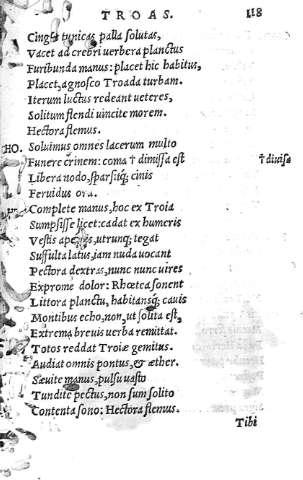 TROAS. 118
Cingat tunicas palla solutas,
Vacet ad crebri uerbera planctus
Furibunda manus: placet hic habitus,
Placet, agnosco Troada turbam.
Iterum luctus redeant ueteres,
Solitum flendi uincite morem.
Hectora flemus.
HO. Soluimus omnes lacerum multo
Funere crinem: coma † dimissa est †diuisa
Libera nodo, sparsitq; cinis
Feruidus ora.
Complete manus, hoc ex Troia
Sumpsisse licet: cadat ex humeris
Vestis apertis, utrunq; tegat
Suffulta latus, iam nuda uocant
Pectora dextras, nunc nunc uires
Exprome dolor: Rhœtea sonent
Littora planctu, habitansq; cauis
Montibus echo, non, ut solita est,
Extrema breuis uerba remittat.
Totos reddat Troiæ gemitus.
Audiat omnis pontus, & æther.
Sæuite manus, pulsu uasto
Tundite pectus, non sum solito
Contenta sono: Hectora flemus.
Tibi